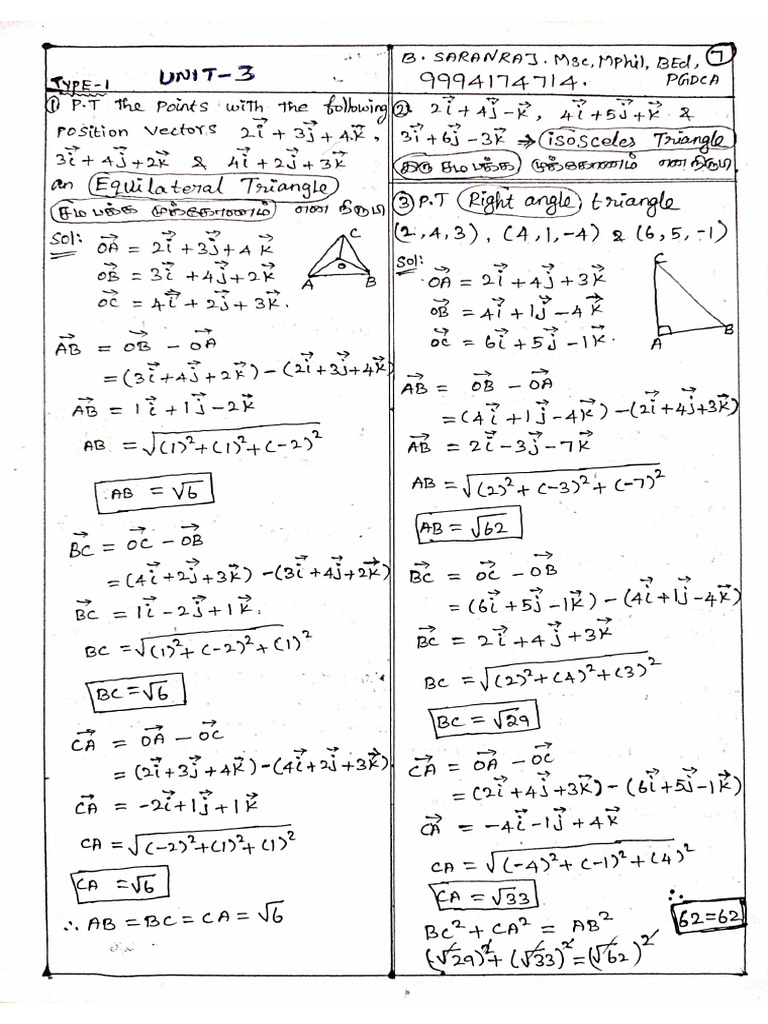 UNIT-3
TYPE-1
① P.T the points with the following
position vectors 2i⃗ + 3j⃗ + 4k⃗,
3i⃗ + 4j⃗ + 2k⃗ & 4i⃗ + 2j⃗ + 3k⃗
an Equilateral Triangle
(சமபக்க முக்கோணம்) என நிரூபி
Sol:
C
O
A B
OA⃗ = 2i⃗ + 3j⃗ + 4k⃗
OB⃗ = 3i⃗ + 4j⃗ + 2k⃗
OC⃗ = 4i⃗ + 2j⃗ + 3k⃗.
AB⃗ = OB⃗ - OA⃗
= (3i⃗ + 4j⃗ + 2k⃗) - (2i⃗ + 3j⃗ + 4k⃗)
AB⃗ = 1i⃗ + 1j⃗ - 2k⃗
AB = √(1)² + (1)² + (-2)²
AB = √6
BC⃗ = OC⃗ - OB⃗
= (4i⃗ + 2j⃗ + 3k⃗) - (3i⃗ + 4j⃗ + 2k⃗)
BC⃗ = 1i⃗ - 2j⃗ + 1k⃗.
BC = √(1)² + (-2)² + (1)²
BC = √6
CA⃗ = OA⃗ - OC⃗
= (2i⃗ + 3j⃗ + 4k⃗) - (4i⃗ + 2j⃗ + 3k⃗)
CA⃗ = -2i⃗ + 1j⃗ + 1k⃗
CA = √(-2)² + (1)² + (1)²
CA = √6
∴ AB = BC = CA = √6
B. SARANRAJ. MSc, MPhil, BEd, ⑦
9994174714. PGDCA
② 2i⃗ + 4j⃗ - k⃗, 4i⃗ + 5j⃗ + k⃗ &
3i⃗ + 6j⃗ - 3k⃗ ⇒ isosceles Triangle
(இரு சமபக்க முக்கோணம் என நிரூபி
③ P.T Right angle, triangle
(2, 4, 3), (4, 1, -4) & (6, 5, -1)
Sol:
C
A B
OA⃗ = 2i⃗ + 4j⃗ + 3k⃗
OB⃗ = 4i⃗ + 1j⃗ - 4k⃗
OC⃗ = 6i⃗ + 5j⃗ - 1k⃗.
AB⃗ = OB⃗ - OA⃗
= (4i⃗ + 1j⃗ - 4k⃗) - (2i⃗ + 4j⃗ + 3k⃗)
AB⃗ = 2i⃗ - 3j⃗ - 7k⃗
AB = √(2)² + (-3)² + (-7)²
AB = √62
BC⃗ = OC⃗ - OB⃗
= (6i⃗ + 5j⃗ - 1k⃗) - (4i⃗ + 1j⃗ - 4k⃗)
BC⃗ = 2i⃗ + 4j⃗ + 3k⃗
BC = √(2)² + (4)² + (3)²
BC = √29
CA⃗ = OA⃗ - OC⃗
= (2i⃗ + 4j⃗ + 3k⃗) - (6i⃗ + 5j⃗ - 1k⃗)
CA⃗ = -4i⃗ - 1j⃗ + 4k⃗
CA = √(-4)² + (-1)² + (4)²
CA = √33
BC² + CA² = AB²
(√29)² + (√33)² = (√62)²
∴ 62 = 62